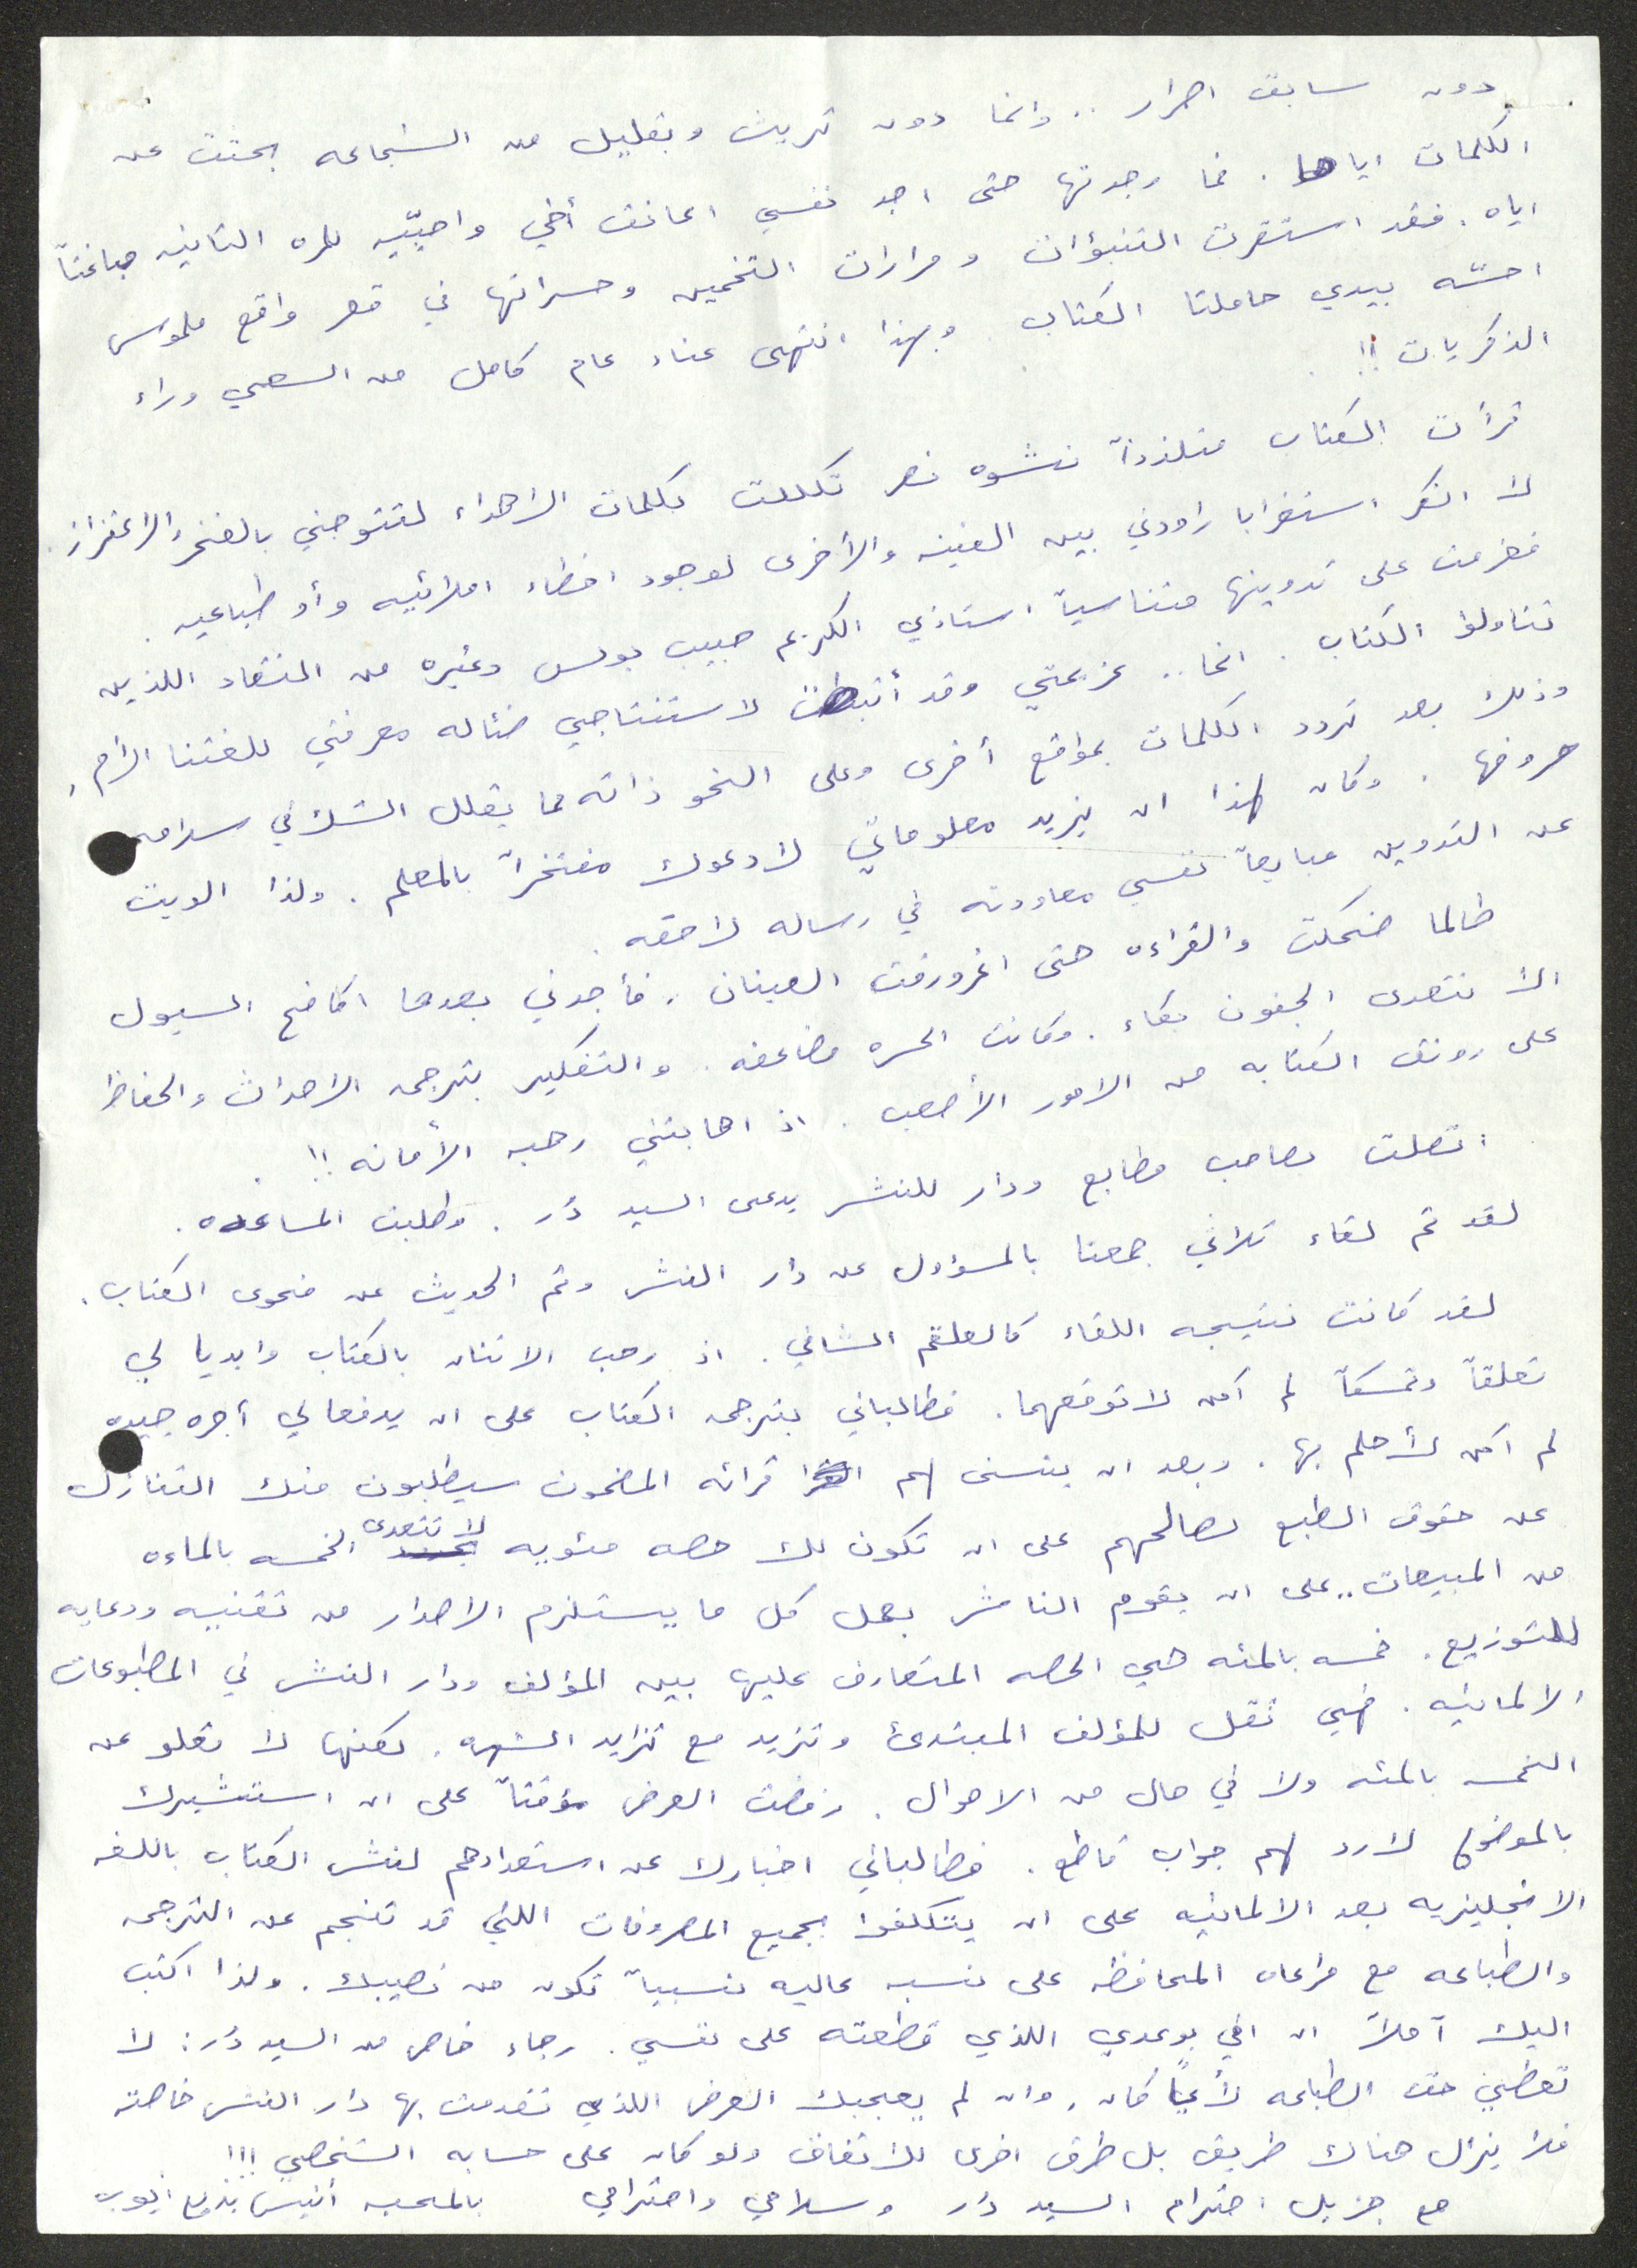 دون سابق اصرار .. وانما دون تريث وبقليل من الشجاعه بحثت عن
الكلمات اياها . فما وجدتها حتى اجد نفسي اعانق أخي واحيّيه للمره الثانيه مباغتاً
اياه . فقد استقرت التنبؤات ومرارات التخمين وحسراتها في قعر واقع ملموس
احسّه بيدي حاملتا الكتاب . وبهذا انتهى عناء عام كامل من السعي وراء
الذكريات !!
قرأت الكتاب متلذذاً نشوه نصر تكللت بكلمات الاهداء لتتوجني بالفخر والاعتزاز .
لا انكر استغرابا راودني بين الفينه والأخرى لوجود اخطاء املائيه وأو طباعيه .
فعزمت على تدوينها متناسياً استاذي الكريم حبيب بولس وغيره من النقاد اللذين
تناولوا الكتاب . انما .. عزيمتي وقد أثبطت لاستنتاجي ضئاله معرفتي للغتنا الام ,
وذلك بعد تردد الكلمات بمواقع أخرى وعلى النحو ذاته مما يقلل الشك في سلامه
حروفها . وكان لهذا ان يزيد معلوماتي لادعوك مفتخراً بالمعلم . ولذا الويت
عن التدوين مبايعاً نفسي معاودته في رساله لاحقه .
طالما ضحكت والقراءه حتى اغرورقت العينان . فأجدني بعدها اكافح السيول
الا تتعدى الجفون بكاء . وكانت الحسره مضاعفه . والتفكير بترجمه الاحداث والحفاظ
على رونق الكتابه من الامور الأصعب . اذ اهابتني رهبه الأمانه !! .
اتصلت بصاحب مطابع ودار للنشر يدعى السيد دُر . وطلبت المساعده .
لقد تم لقاء ثلاثي جمعنا بالمسؤول عن دار النشر وتم الحديث عن فحوى الكتاب .
لقد كانت نتيجه اللقاء كالعلقم الشافي . اذ رحب الاثنان بالكتاب وابديا لي
تعلقاً وتمسكاً لم أكن لاتوقعهما . فطالباني بترجمه الكتاب على ان يدفعا لي أجره جيده
لم اكن لأحلم بها . وبعد ان يتسنى لهم قرائه المضمون سيطلبون منك التنازل
عن حقوق الطبع لصالحهم على ان تكون لك حصه مئويه لا تتعدى الخمسه بالماءه
من المبيعات .. على ان يقوم الناشر بعمل كل ما يستلزم الاصدار من تقنيه ودعايه
للتوزيع . خمسه بالمئه هي الحصه المتعارف عليها بين المؤلف ودار النشر في المطبوعات
الالمانيه . فهي تقل للمؤلف المبتدئ وتزيد مع تزايد الشهره . لكنها لا تعلو عن
الخمسه بالمئه ولا في حال من الاحوال . رفضت العرض مؤقتاً على ان استشيرك
بالموضوع لارد لهم جواب قاطع . فطالباني اخبارك عن استعدادهم لنشر الكتاب باللغه
الانجليزيه بعد الالمانيه على ان يتكلفوا بجميع المصروفات اللتي قد تنجم عن الترجمه
والطباعه مع مراعاه المحافظه على نسبه عاليه نسبياً تكون من نصيبك . ولذا اكتب
اليك آملاً ان افي بوعدي اللذي قطعته على نفسي . رجاء خاص من السيد دُر : لا
تعطي حق الطباعه لأيّاً كان , وان لم يعجبك العرض اللذي تقدمت بها دار النشر خاصته
فلا يزال هناك طريق بل طرق اخرى للاتفاق ولو كان على حسابه الشخصي !!!
مع جزيل احترام السيد دُر وسلامي واحترامي بالمحبه أنيس بديع ايوب